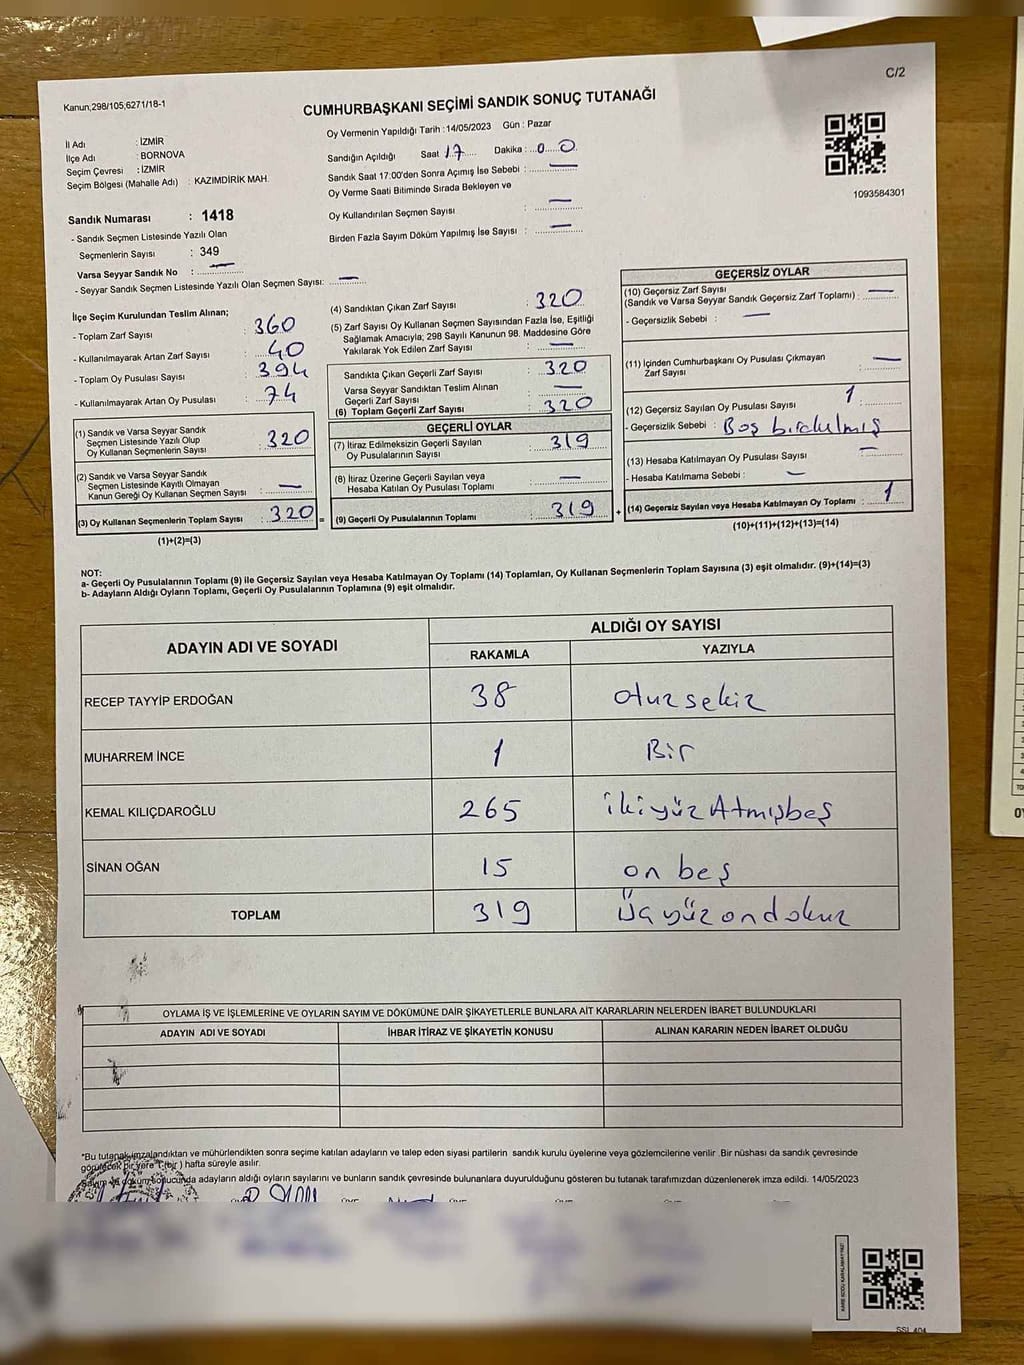 C/2
Kanun;298/105;6271/18-1
CUMHURBAŞKANI SEÇİMİ SANDIK SONUÇ TUTANAĞI
Oy Vermenin Yapıldığı Tarih :14/05/2023 Gün : Pazar
İl Adı : İZMİR
İlçe Adı : BORNOVA
Seçim Çevresi : İZMİR
Seçim Bölgesi (Mahalle Adı) : KAZIMDİRİK MAH.
Sandık Numarası : 1418
- Sandık Seçmen Listesinde Yazılı Olan
Seçmenlerin Sayısı : 349
Varsa Seyyar Sandık No : —
- Seyyar Sandık Seçmen Listesinde Yazılı Olan Seçmen Sayısı: —
Sandığın Açıldığı Saat 17 Dakika : 00
Sandık Saat 17:00'den Sonra Açımış İse Sebebi : —
Oy Verme Saati Bitiminde Sırada Bekleyen ve
Oy Kullandırılan Seçmen Sayısı : —
Birden Fazla Sayım Döküm Yapılmış İse Sayısı : —
1093584301
İlçe Seçim Kurulundan Teslim Alınan;
- Toplam Zarf Sayısı : 360
- Kullanılmayarak Artan Zarf Sayısı : 40
- Toplam Oy Pusulası Sayısı : 394
- Kullanılmayarak Artan Oy Pusulası : 74
(1) Sandık ve Varsa Seyyar Sandık
Seçmen Listesinde Yazılı Olup
Oy Kullanan Seçmenlerin Sayısı : 320
(2) Sandık ve Varsa Seyyar Sandık
Seçmen Listesinde Kayıtlı Olmayan
Kanun Gereği Oy Kullanan Seçmen Sayısı : —
(3) Oy Kullanan Seçmenlerin Toplam Sayısı : 320 =
(1)+(2)=(3)
(4) Sandıktan Çıkan Zarf Sayısı : 320
(5) Zarf Sayısı Oy Kullanan Seçmen Sayısından Fazla İse, Eşitliği
Sağlamak Amacıyla; 298 Sayılı Kanunun 98. Maddesine Göre
Yakılarak Yok Edilen Zarf Sayısı : —
Sandıkta Çıkan Geçerli Zarf Sayısı : 320
Varsa Seyyar Sandıktan Teslim Alınan
Geçerli Zarf Sayısı : —
(6) Toplam Geçerli Zarf Sayısı : 320
GEÇERLİ OYLAR
(7) İtiraz Edilmeksizin Geçerli Sayılan
Oy Pusulalarının Sayısı : 319
(8) İtiraz Üzerine Geçerli Sayılan veya
Hesaba Katılan Oy Pusulası Toplamı : —
(9) Geçerli Oy Pusulalarının Toplamı : 319 +
GEÇERSİZ OYLAR
(10) Geçersiz Zarf Sayısı
(Sandık ve Varsa Seyyar Sandık Geçersiz Zarf Toplamı) : —
- Geçersizlik Sebebi : —
(11) İçinden Cumhurbaşkanı Oy Pusulası Çıkmayan
Zarf Sayısı : —
(12) Geçersiz Sayılan Oy Pusulası Sayısı : 1
- Geçersizlik Sebebi : Boş bırakılmış
(13) Hesaba Katılmayan Oy Pusulası Sayısı : —
- Hesaba Katılmama Sebebi : —
(14) Geçersiz Sayılan veya Hesaba Katılmayan Oy Toplamı : 1
(10)+(11)+(12)+(13)=(14)
NOT:
a- Geçerli Oy Pusulalarının Toplamı (9) ile Geçersiz Sayılan veya Hesaba Katılmayan Oy Toplamı (14) Toplamları, Oy Kullanan Seçmenlerin Toplam Sayısına (3) eşit olmalıdır. (9)+(14)=(3)
b- Adayların Aldığı Oyların Toplamı, Geçerli Oy Pusulalarının Toplamına (9) eşit olmalıdır.
ADAYIN ADI VE SOYADI ALDIĞI OY SAYISI
RAKAMLA YAZIYLA
RECEP TAYYİP ERDOĞAN 38 otuzsekiz
MUHARREM İNCE 1 Bir
KEMAL KILIÇDAROĞLU 265 ikiyüzAtmışbeş
SİNAN OĞAN 15 on beş
TOPLAM 319 Üçyüzondokuz
OYLAMA İŞ VE İŞLEMLERİNE VE OYLARIN SAYIM VE DÖKÜMÜNE DAİR ŞİKAYETLERLE BUNLARA AİT KARARLARIN NELERDEN İBARET BULUNDUKLARI
ADAYIN ADI VE SOYADI İHBAR İTİRAZ VE ŞİKAYETİN KONUSU ALINAN KARARIN NEDEN İBARET OLDUĞU
*Bu tutanak imzalandıktan ve mühürlendikten sonra seçime katılan adayların ve talep eden siyasi partilerin sandık kurulu üyelerine veya gözlemcilerine verilir .Bir nüshası da sandık çevresinde
görülecek bir yere 1 (bir ) hafta süreyle asılır.
Sayım ve döküm sonucunda adayların aldığı oyların sayılarını ve bunların sandık çevresinde bulunanlara duyurulduğunu gösteren bu tutanak tarafımızdan düzenlenerek imza edildi. 14/05/2023